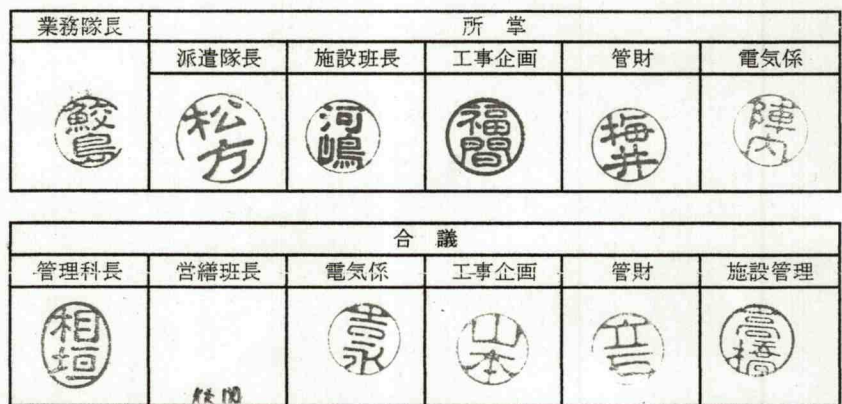 業務隊長 所掌
派遣隊長 施設班長 工事企画 管財 電気係
鮫島 松方 河嶋 福間 梅井 陣内
合議
管理科長 営繕班長 電気係 工事企画 管財 施設管理
相垣 吉永 山本 高橋